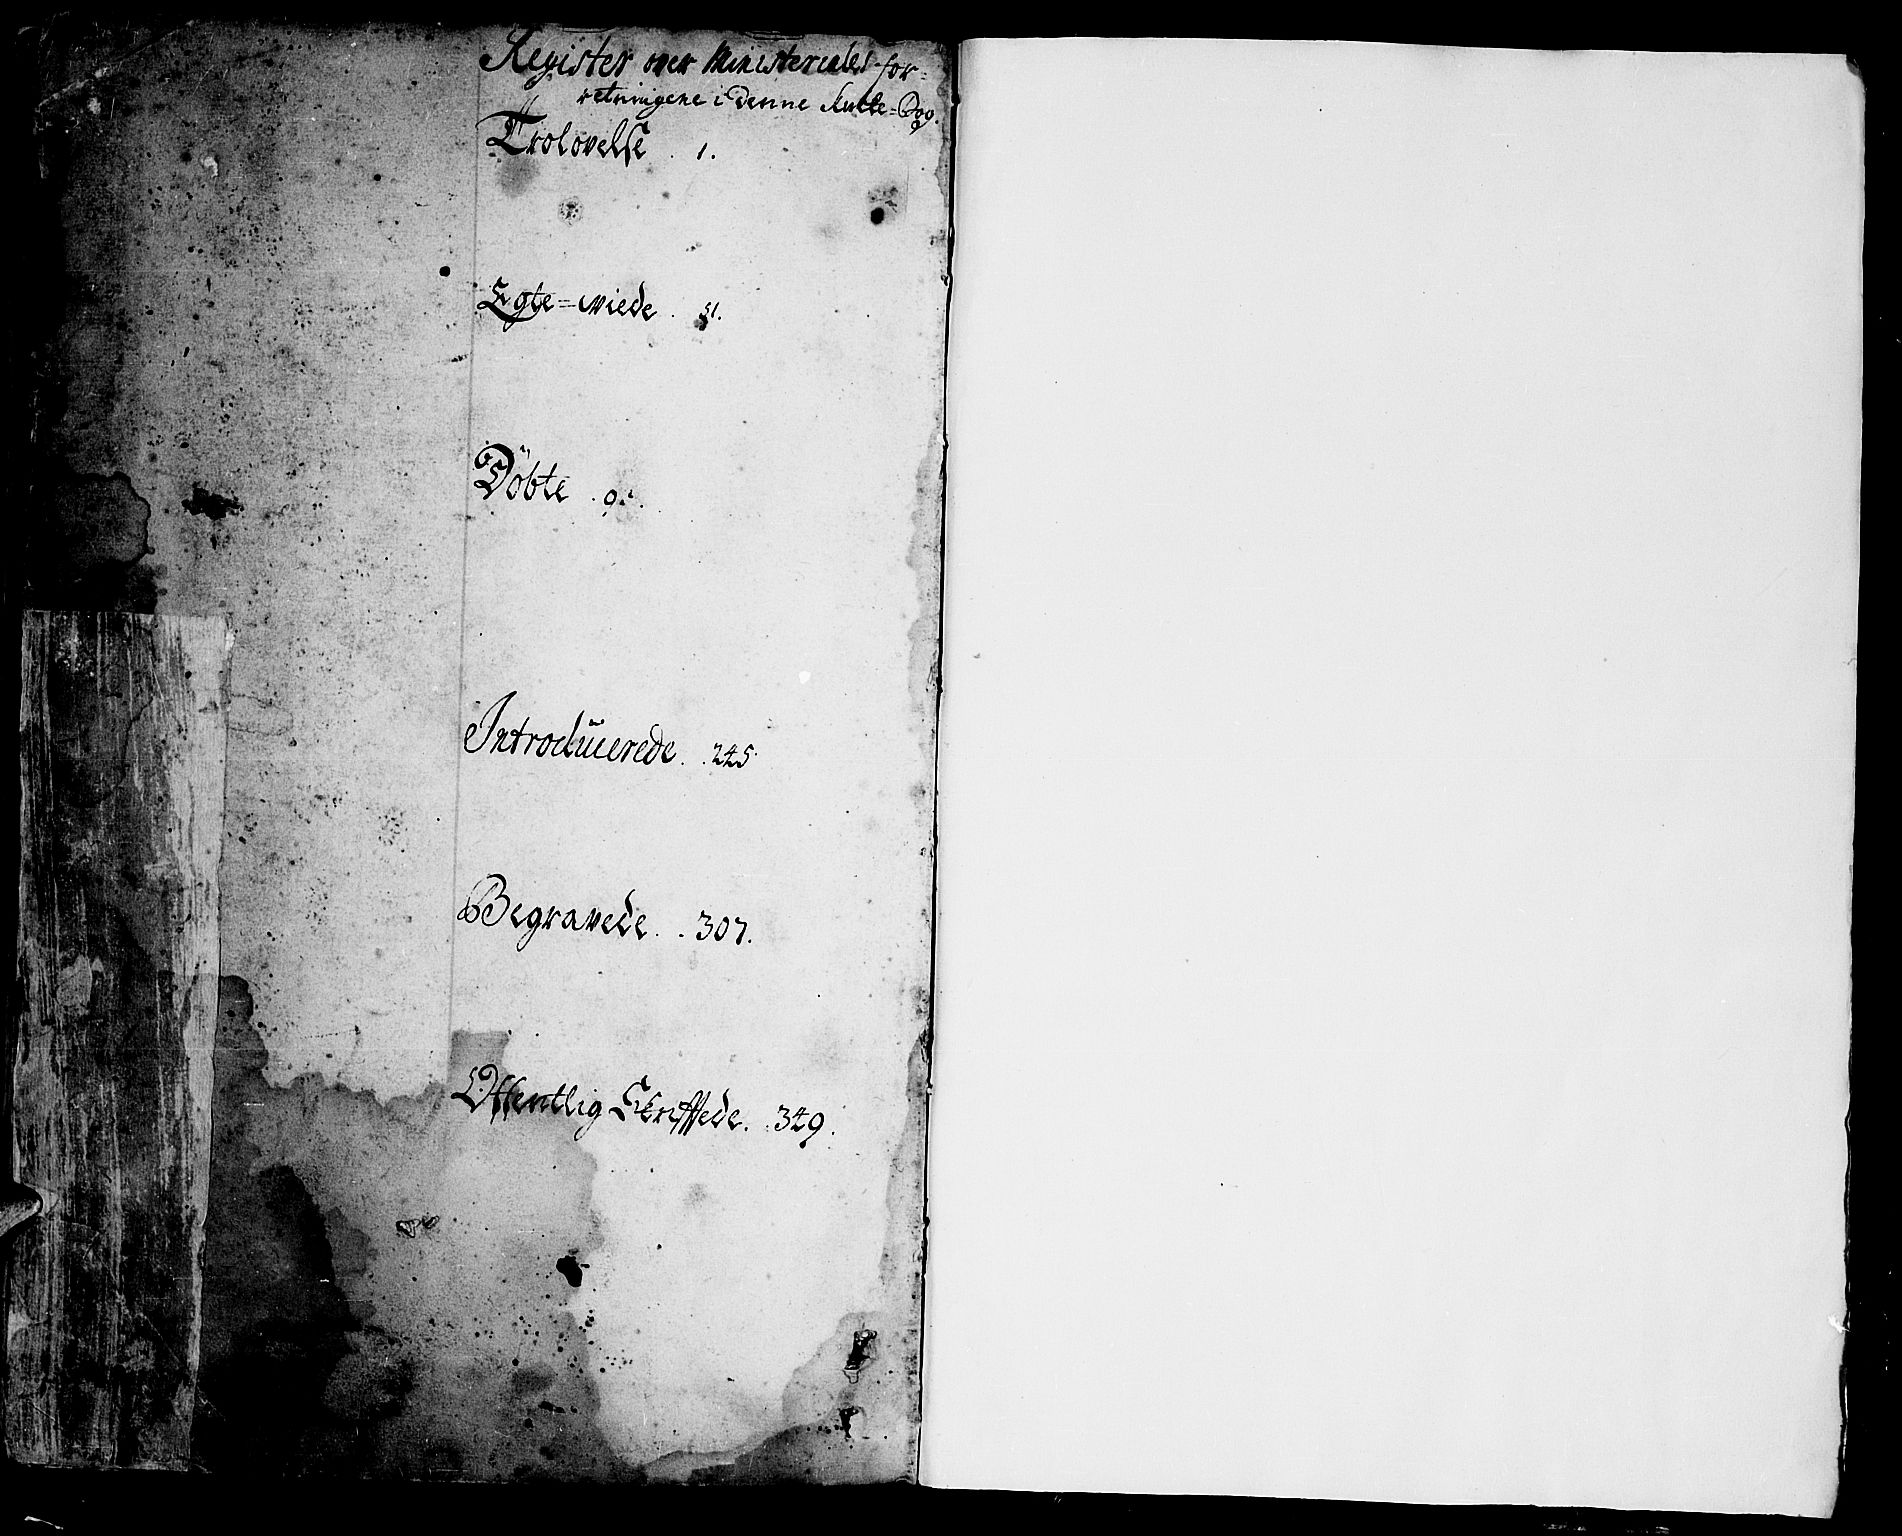 Register over Ministerialesfor=
retningene i denne Kirke=Bog.
Trolovelse . 1.
Egte=Wiede . 51.
Döbte .
Introducerede . . 245.
Begravede . . 307.
Offentlig Skriftede . . 349.